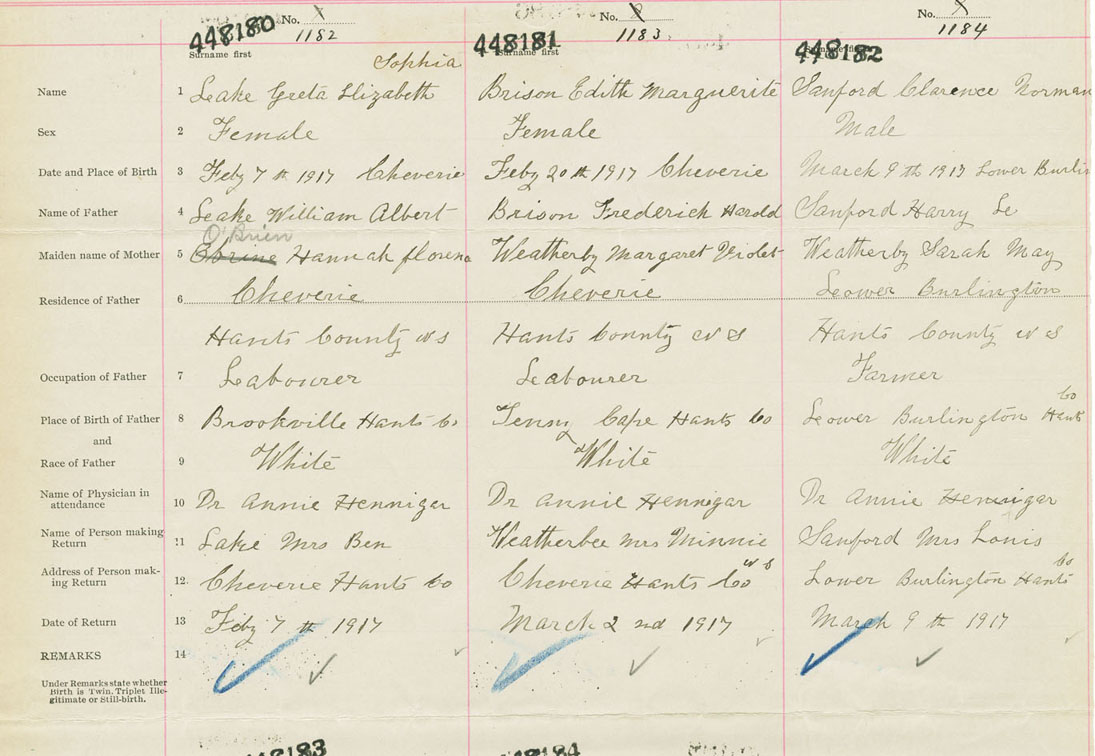 No. X No. 8 No. X
448180 1182 448181 1183 448182 1184
Surname first Surname first Surname first
Sophia
Name 1 Leake Greta Elizabeth Brison Edith Marguerite Sanford Clarence Norman
Sex 2 Female Female Male
Date and Place of Birth 3 Feby 7th 1917 Cheverie Feby 20th 1917 Cheverie March 9th 1917 Lower Burlin
Name of Father 4 Leake William Albert Brison Frederick Harold Sanford Harry Le
O'Brien
Maiden name of Mother 5 Obrine Hannah florena Weatherby Margaret Violet Weatherby Sarah May
Residence of Father 6 Cheverie Cheverie Leower Burlington
Hants County N S Hants County N S Hants County N S
Occupation of Father 7 Leabourer Leabourer Farmer
Co
Place of Birth of Father 8 Brookville Hants Co Tenny Cape Hants Co Leower Burlington Hants
and
Race of Father 9 White White White
Name of Physician in
attendance 10 Dr Annie Hennigar Dr Annie Hennigar Dr Annie Hennigar
Name of Person making
Return 11 Lake Mrs Ben Weatherbee Mrs Minnie Sanford Mrs Louis
Address of Person mak-
ing Return 12. Cheverie Hants Co Cheverie Hants Co N S Lower Burlington Hants Co
Date of Return 13 Feby 7th 1917 March 2nd 1917 March 9th 1917
REMARKS 14
Under Remarks state whether
Birth is Twin, Triplet Ille-
gitimate or Still-birth.
448183 448184